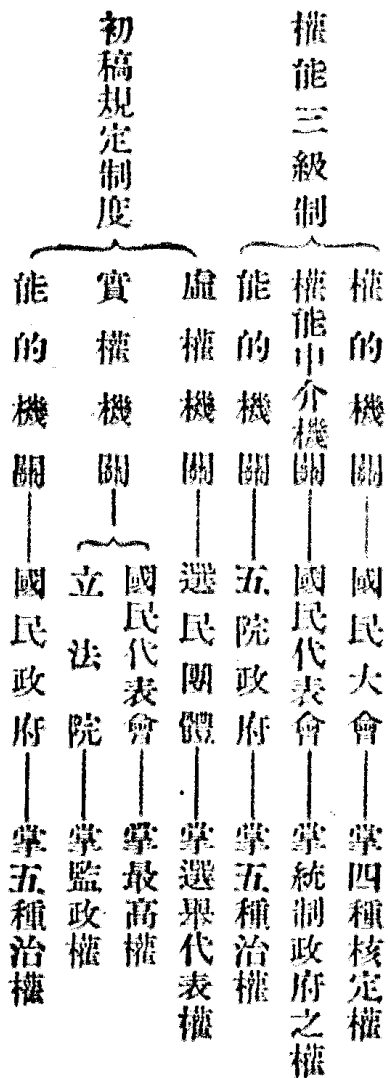 權能三級制
權的機關——國民大會——掌四種核定權
權能中介機關——國民代表會——掌統制政府之權
能的機關——五院政府——掌五種治權
初稿規定制度
虛權機關——選民團體——掌選舉代表權
實權機關
國民代表會——掌最高權
立法院——掌監政權
能的機關——國民政府——掌五種治權